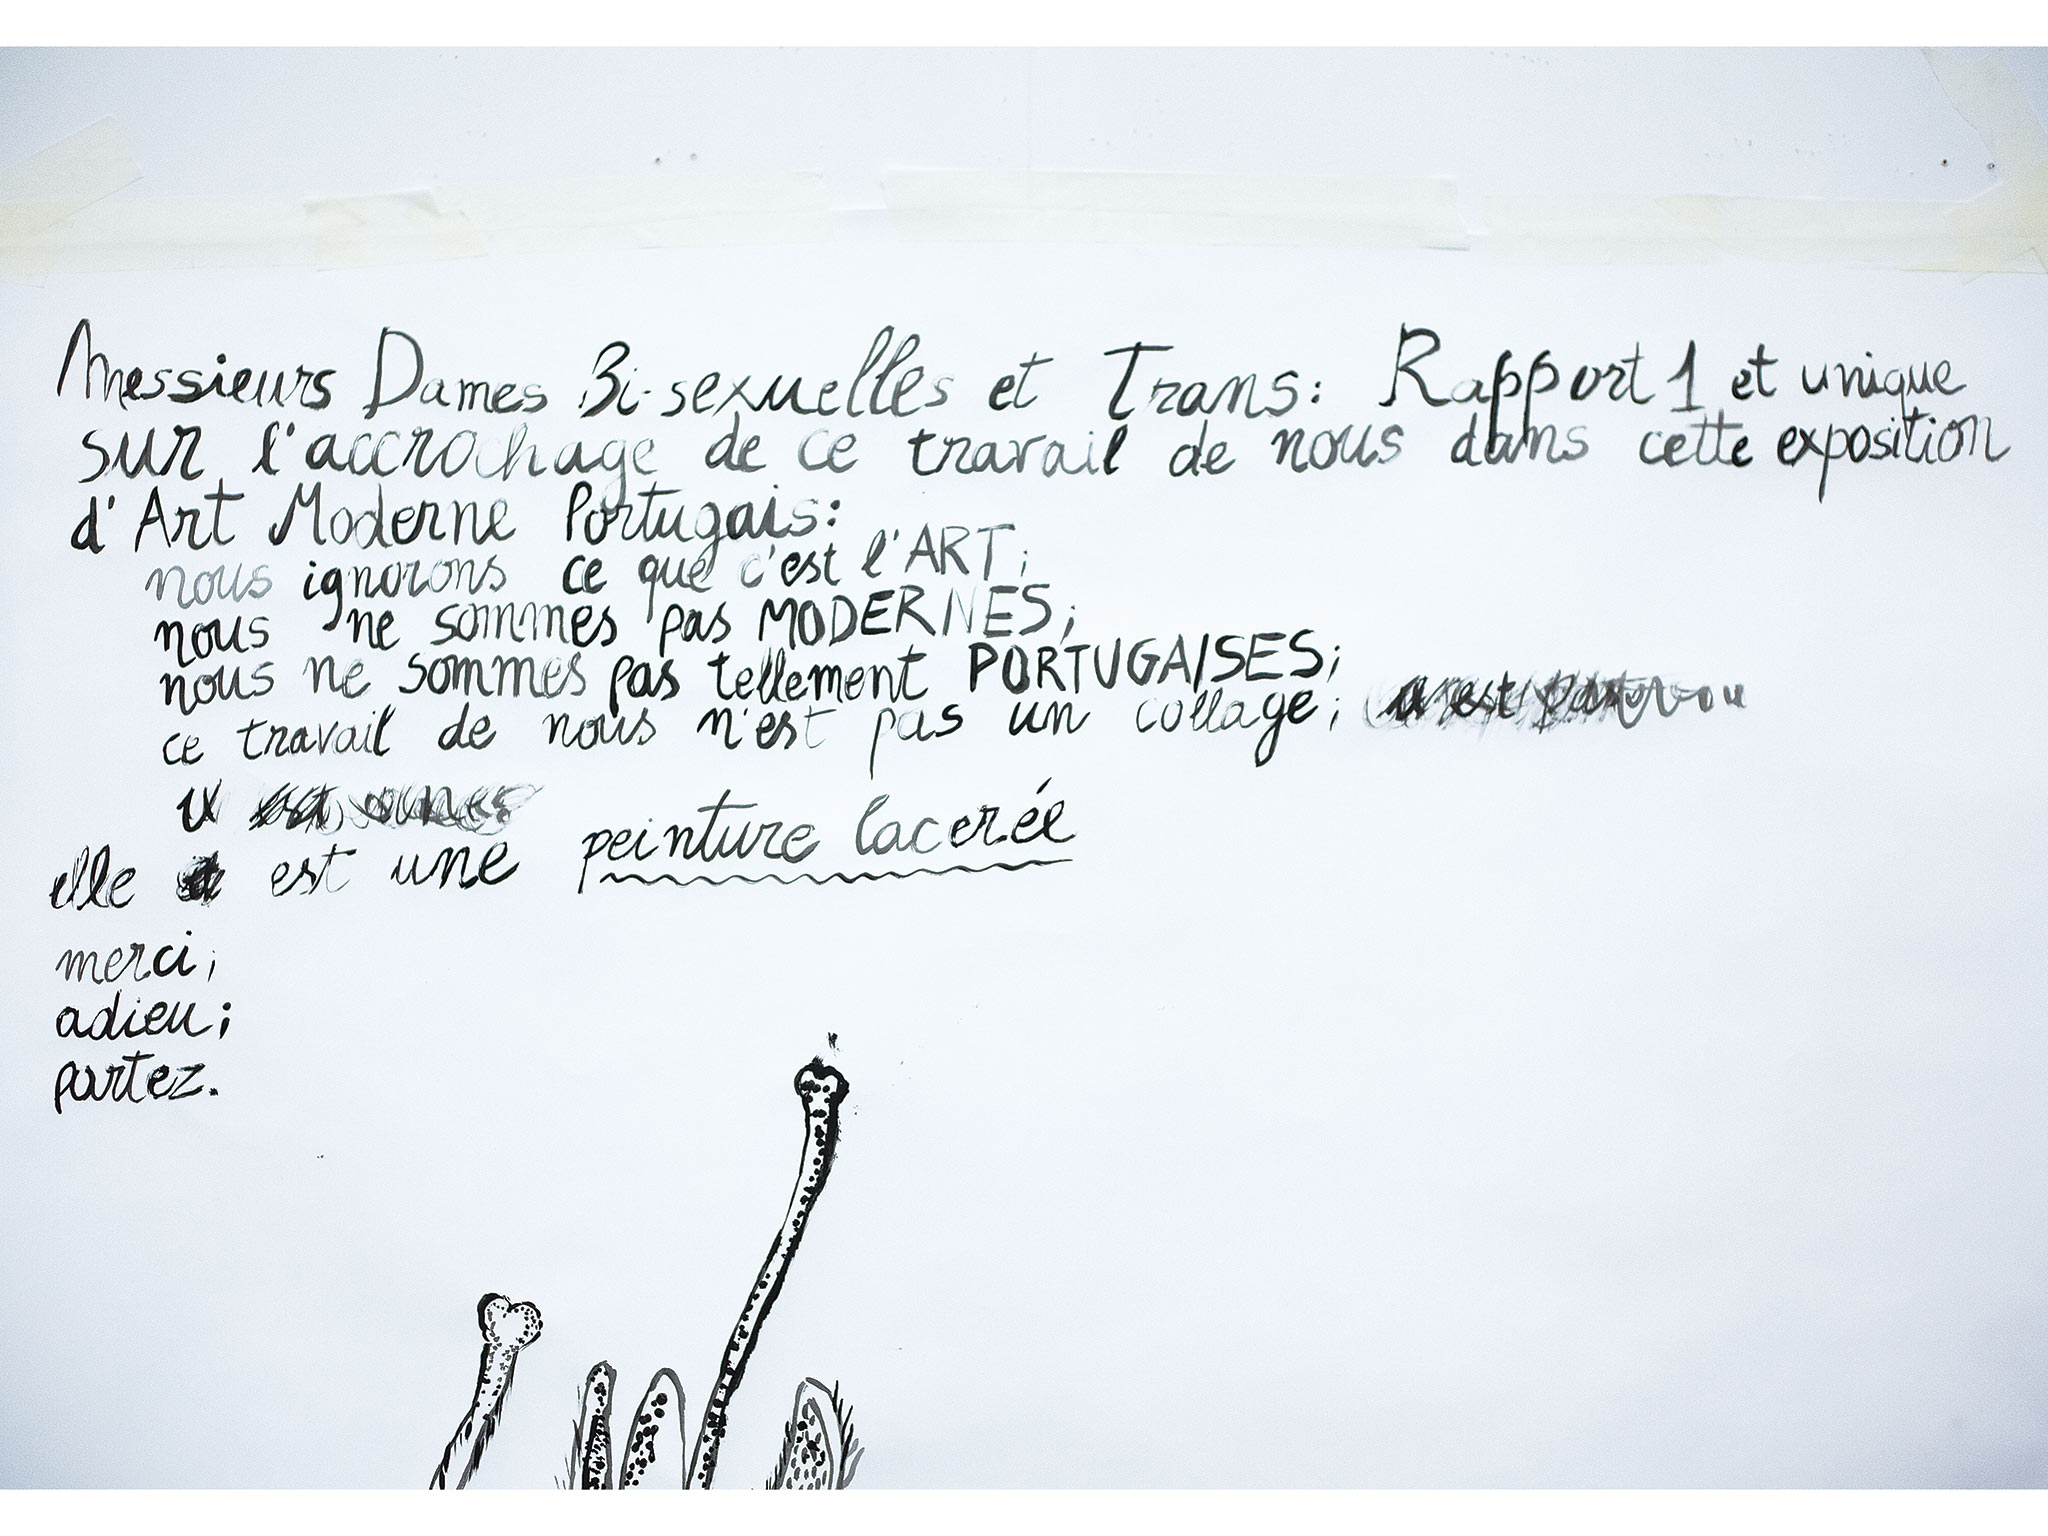 Messieurs Dames Bi-sexuelles et Trans: Rapport 1 et unique
sur l'accrochage de ce travail de nous dans cette exposition
d'Art Moderne Portugais:
nous ignorons ce que c'est l'ART;
nous ne sommes pas MODERNES;
nous ne sommes pas tellement PORTUGAISES;
ce travail de nous n'est pas un collage;
elle est une peinture lacerée
merci;
adieu;
partez.